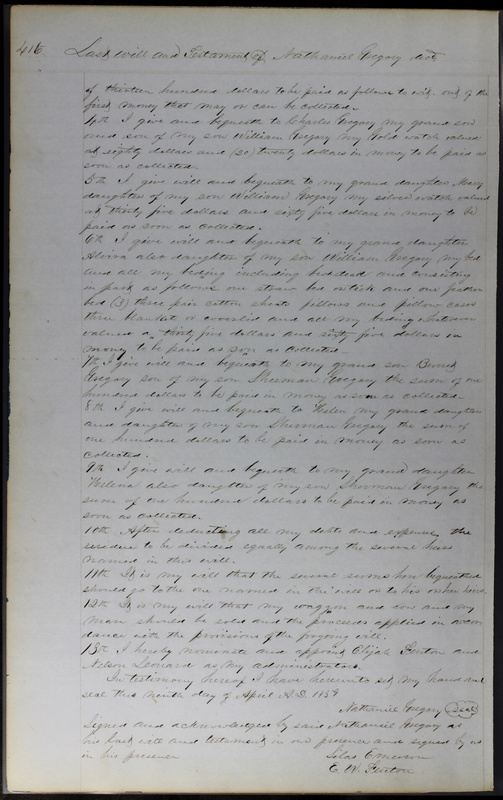 416 Last will and Testament of Nathaniel Gregory decd
of thirteen hundred dollars to be paid as follows to wit. out of the
first money that may or can be collected.
4th I give and bequeath to Charles Gregory my grand son
and son of my son William Gregory my Gold watch valued
at eighty dollars and (20) twenty dollars in money to be paid as
soon as collected.
5th I give will and bequeath to my grand daughter Mary
daughter of my son William Gregory my silver watch valued
at thirty five dollars and sixty five dollars in money to be
paid as soon as collected.
6th I give will and bequeath to my grand daughter
Alvira also daughter of my son William Gregory my bed
and all my beding including bedstead and consisting
in part as follows one straw bed stick and one feather
bed (3) three pair cotton sheets pillows and pillow cases
three blanket or coverlid and all my beding
valued a thirty five dollars and sixty five dollars in
money to be paid as soon as collected.
7th I give will and bequeath to my grand son
Gregory son of my son Sherman Gregory the sum of one
hundred dollars to be paid in money as soon as collected
8th I give will and bequeath to Helen my grand daughter
and daughter of my son Sherman Gregory the sum of
one hundred dollars to be paid in money as soon as
collected.
9th I give will and bequeath to my grand daughter
Helena also daughter of my son Sherman Gregory the
sum of one hundred dollars to be paid in money as
soon as collected.
10th After deducting all my debts and expenses the
residue to be divided equally among the several heirs
named in this will.
11th It is my will that the several sums here bequeathed
should go to the one named in the will or to his or her heirs.
12th It is my will that my waggon and cow and my
mare should be sold and the proceeds applied in accor
dance with the provisions of the forgoing will.
13th I hereby nominate and appoint Elijah Fenton and
Nelson Leonard as my administrators.
In testimony hereof I have hereunto set my hand and
seal this ninth day of April A.D. 1859
Nathaniel Gregory (seal)
Signed and acknowledged by said Nathaniel Gregory as
his last will and testament in our presence and signed by us
in his presence Silas Emerson
E. W. Fenton